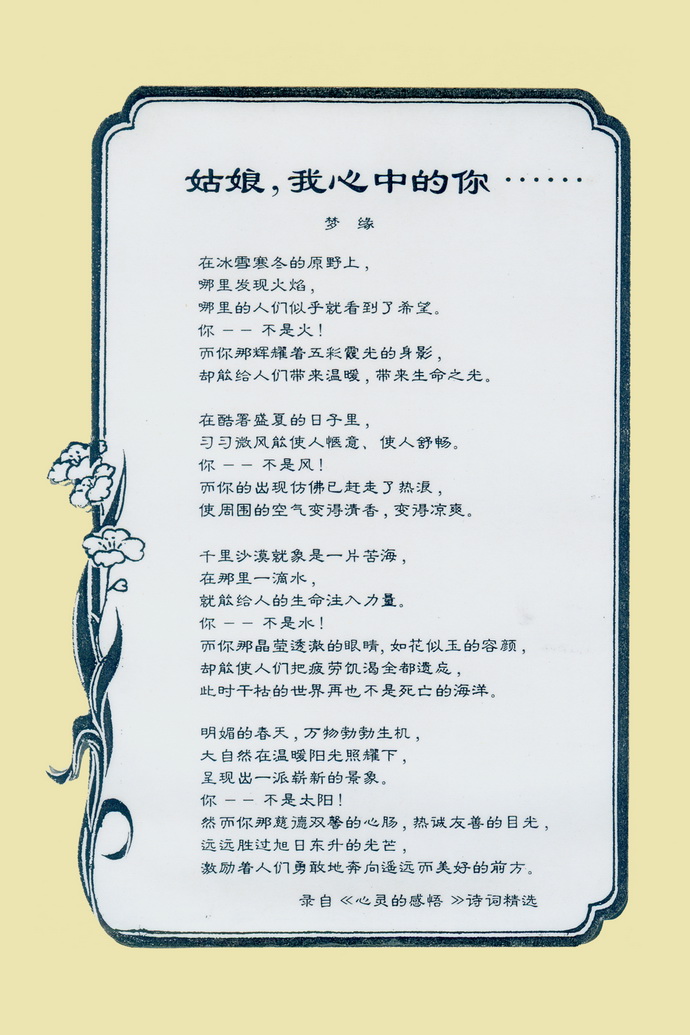 姑娘，我心中的你……
梦 缘
在冰雪寒冬的原野上，
哪里发现火焰，
哪里的人们似乎就看到了希望。
你 －－ 不是火！
而你那辉耀着五彩霞光的身影，
却能给人们带来温暖，带来生命之光。
在酷署盛夏的日子里，
习习微风能使人惬意、使人舒畅。
你 －－ 不是风！
而你的出现仿佛已赶走了热浪，
使周围的空气变得清香，变得凉爽。
千里沙漠就象是一片苦海，
在那里一滴水，
就能给人的生命注入力量。
你 －－ 不是水！
而你那晶莹透澈的眼睛，如花似玉的容颜，
却能使人们把疲劳饥渴全都遗忘，
此时干枯的世界再也不是死亡的海洋。
明媚的春天，万物勃勃生机，
大自然在温暖阳光照耀下，
呈现出一派崭新的景象。
你 －－ 不是太阳！
然而你那慈德双馨的心肠，热诚友善的目光，
远远胜过旭日东升的光芒，
激励着人们勇敢地奔向遥远而美好的前方。
录自《心灵的感悟》诗词精选